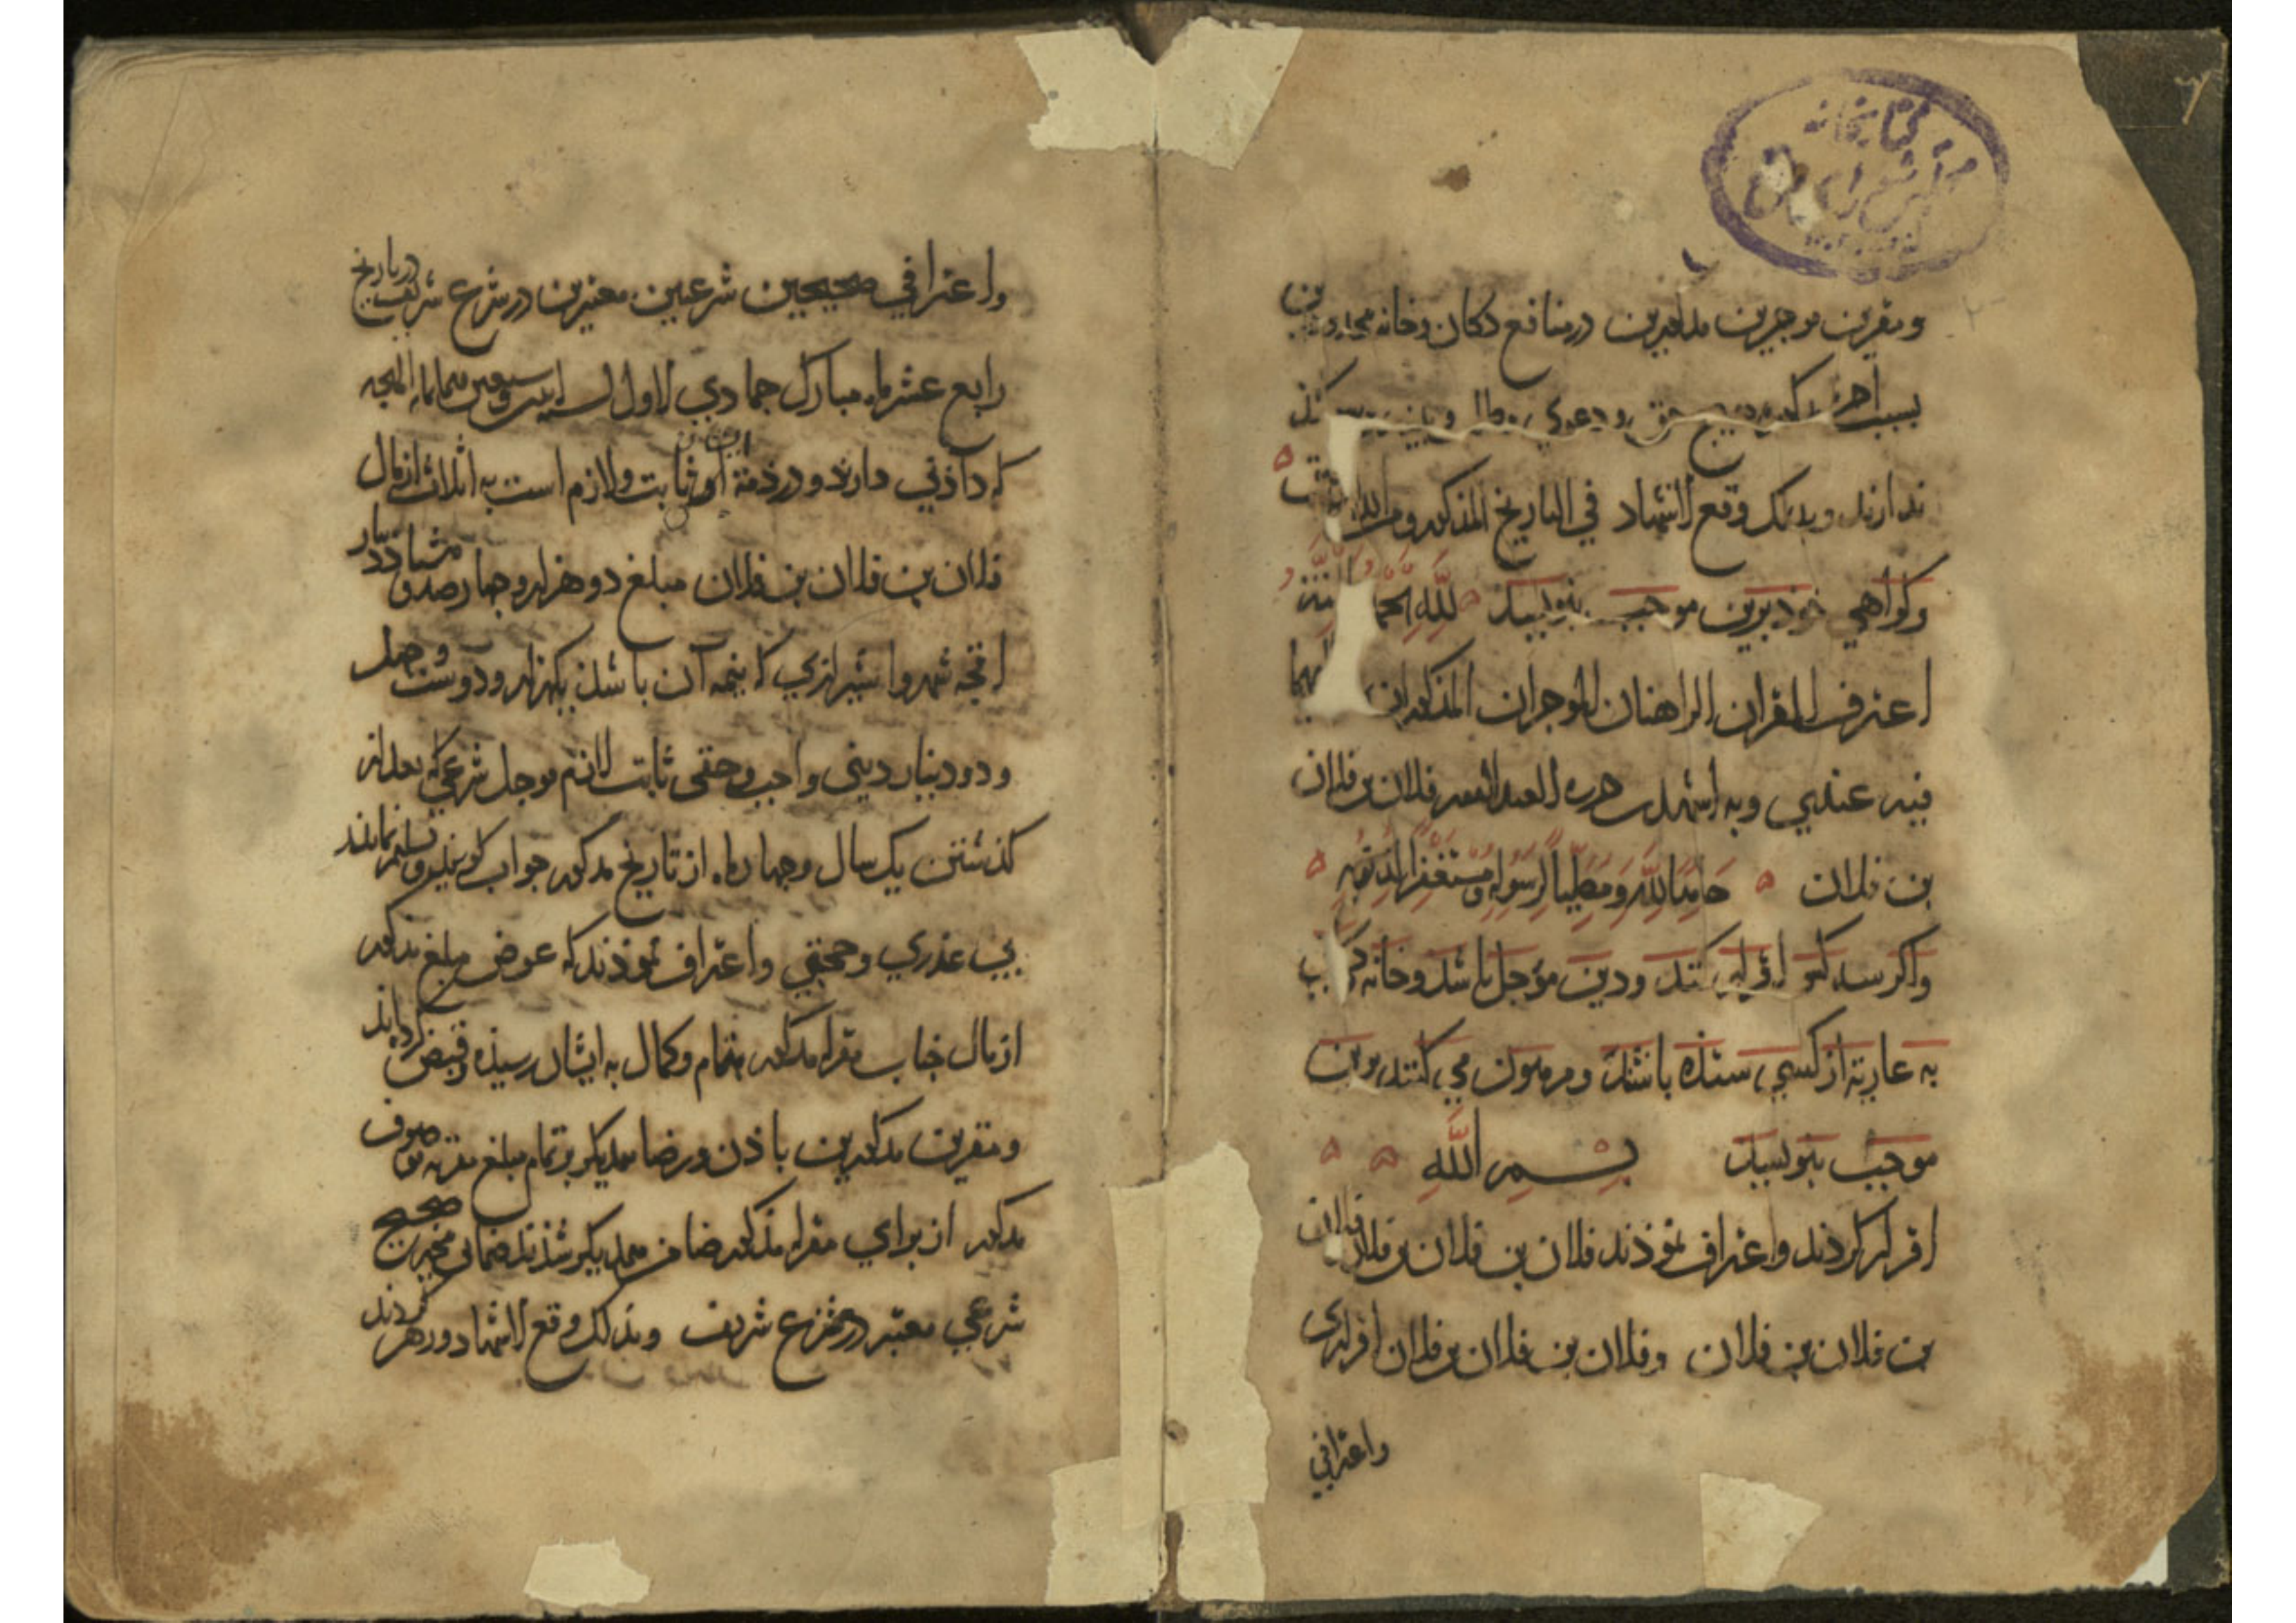 کتابخانه
مجلس شورای ملی
ومقرین موجرین مذکورین در منافع دکان وخانه محدودین
بسبب حق ودعوی
ندارند وبذلک وقع الاشهاد في التاريخ المذکور
وکواهی خوذ برین موجب بنویسد لله
اعترف المقران الراهنان الموجران المذکوران
فیه عندي وبه اشهد حرره العبد فلان بن فلان
بن فلان حامدا لله ومصلیا لرسوله ومستغفرا لذنوبه
واکر سه کس اقرار کنند ودین مؤجل باشد وخانه
به عاریة از کسی ستده باشد ومرهون می کنند برین
موجب بنویسد بسم الله
اقرار کردند واعتراف نموذند فلان بن فلان بن فلان وفلان
بن فلان بن فلان وفلان بن فلان بن فلان اقراری
واعترافی
واعترافی صحیحین شرعیین معتبرین در شرع شریف در تاریخ
رابع عشر ماه مبارک جمادي الاول سنه
که دادنی دارند و در ذمة ثابت ولازم است به اثلاث از مال
فلان بن فلان بن فلان مبلغ دو هزار وچهارصد وهشتاد دینار
اقچه شهروا شیرازی که نیمه آن باشد یکهزار ودویست وچهل
ودو دینار دینی واجب وحقی ثابت لازم موجل شرعی که بعد از
کذشتن یک سال وچهار ماه از تاریخ مذکور جواب کویند وتسلیم نمایند
بی عذری وحجتی واعتراف نموذند که عوض مبلغ مذکور
از مال جناب مقرله مذکور بتمام وکمال به ایشان رسیذه وقبض کرده اند
ومقرین مذکورین باذن ورضا یکدیکر بر تمام مبلغ مقربه موصوف
مذکور از برای مقرله مذکور ضامن همدیکر شذند ضمانی صحیح
شرعی معتبر در شرع شریف وبذلک وقع الاشهاد